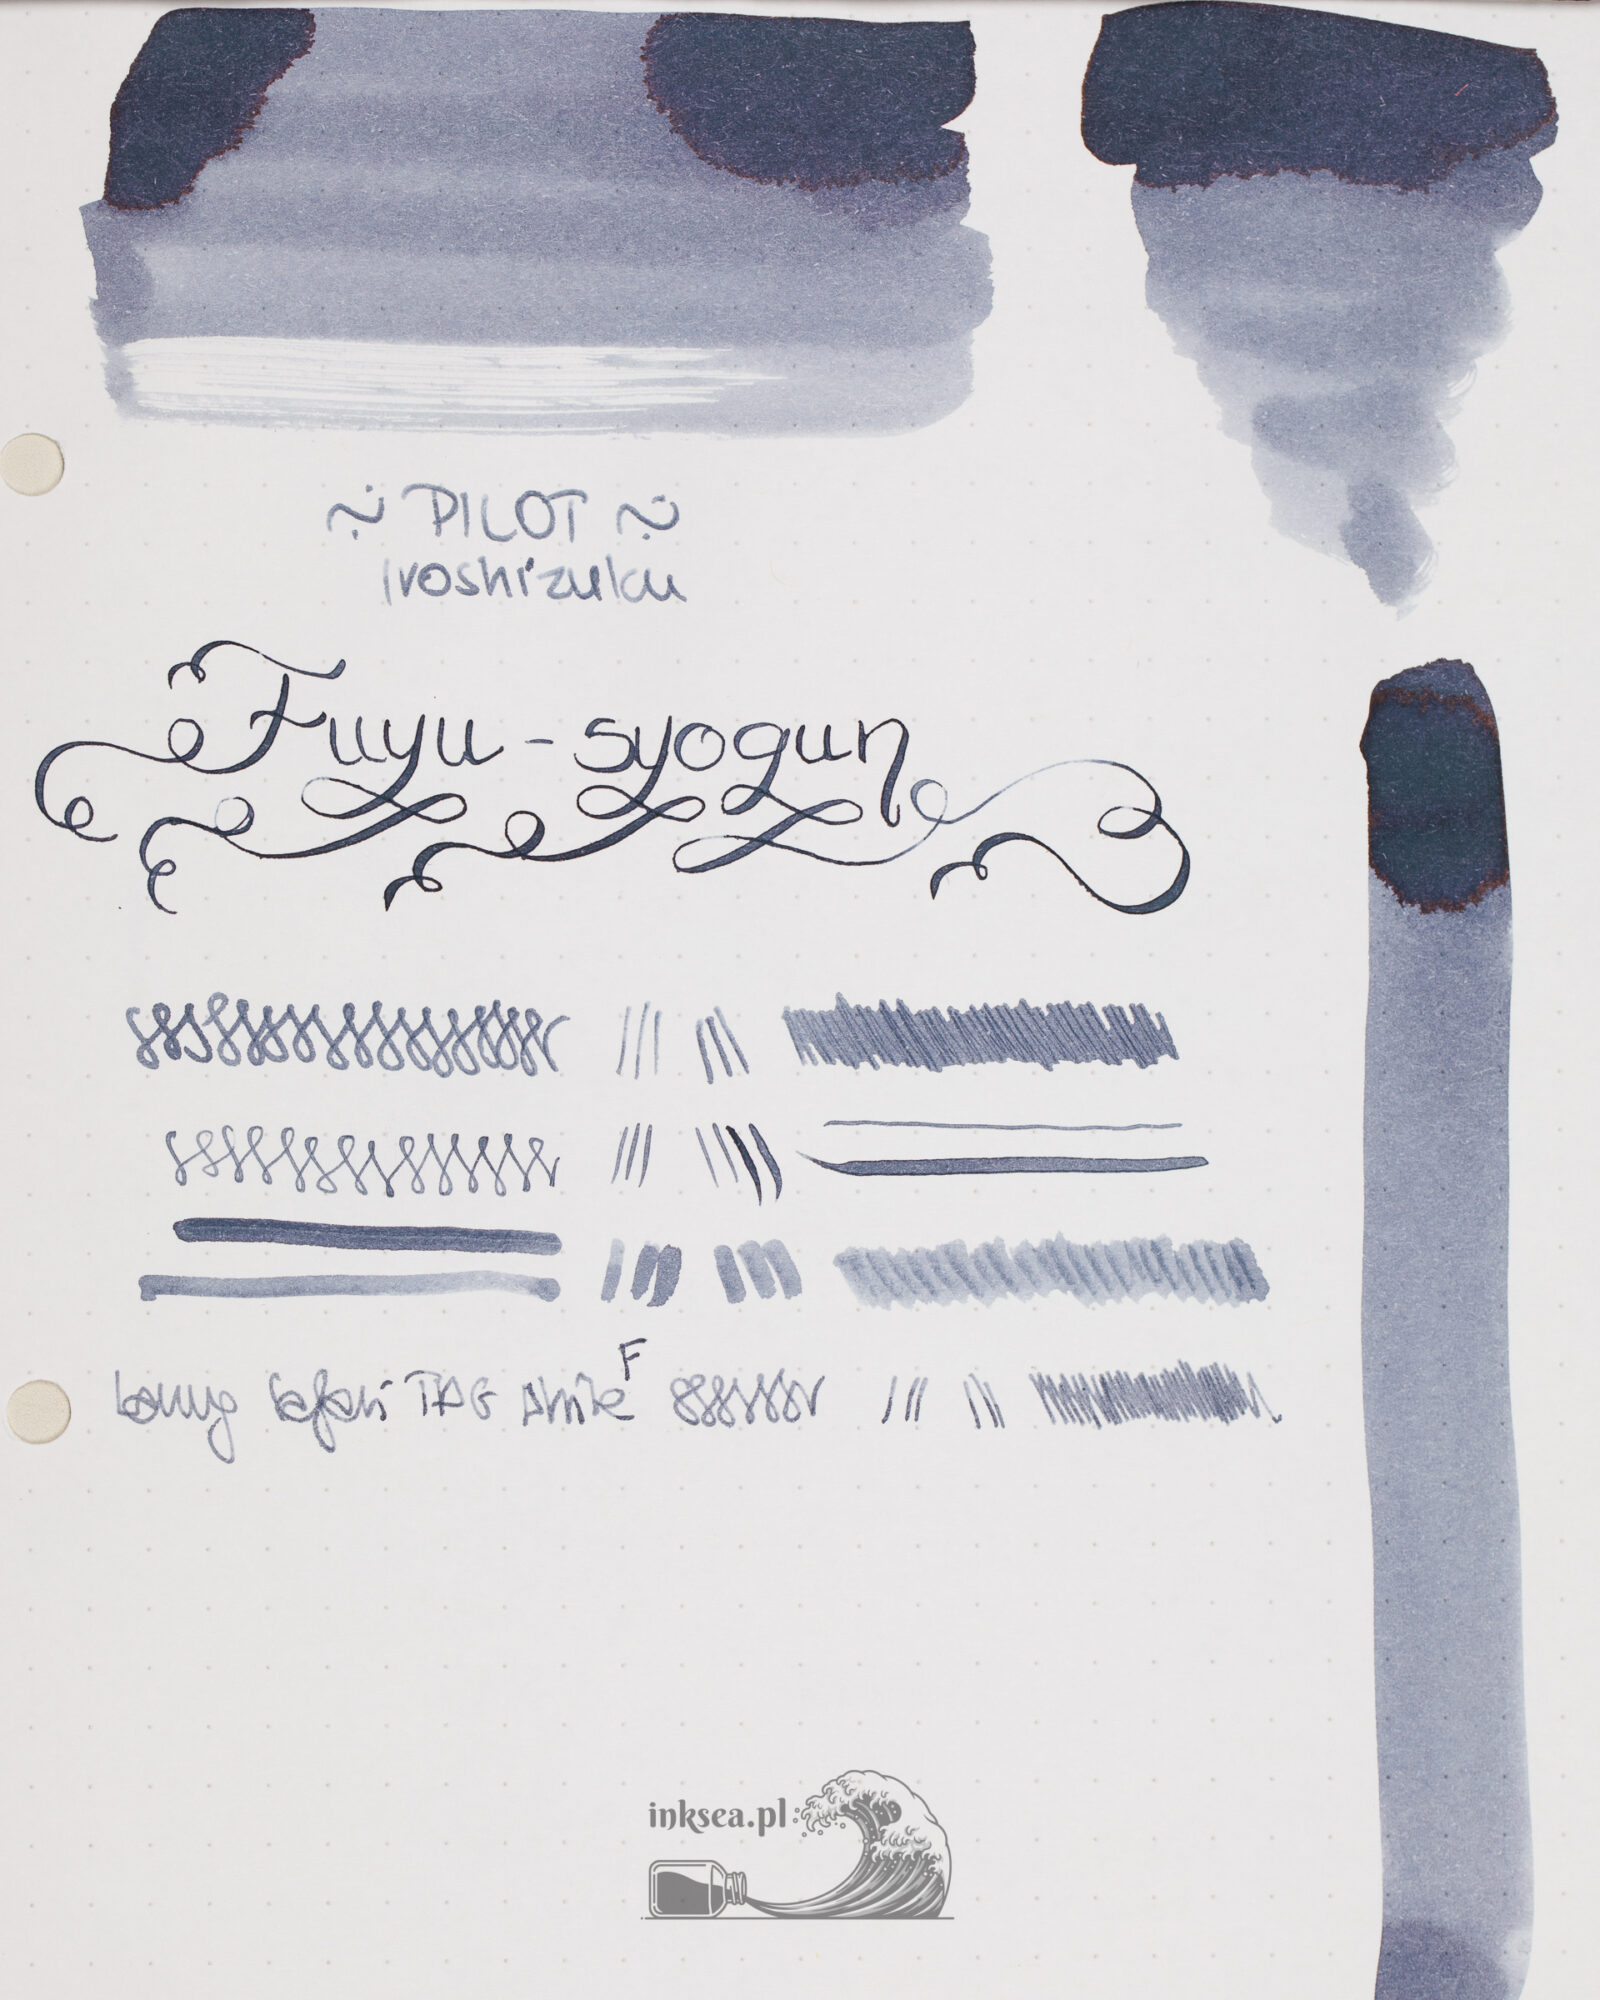 ~ PILOT ~
Iroshizuku
Fuyu-syogun
Lamy Safari TAG white F
inksea.pl